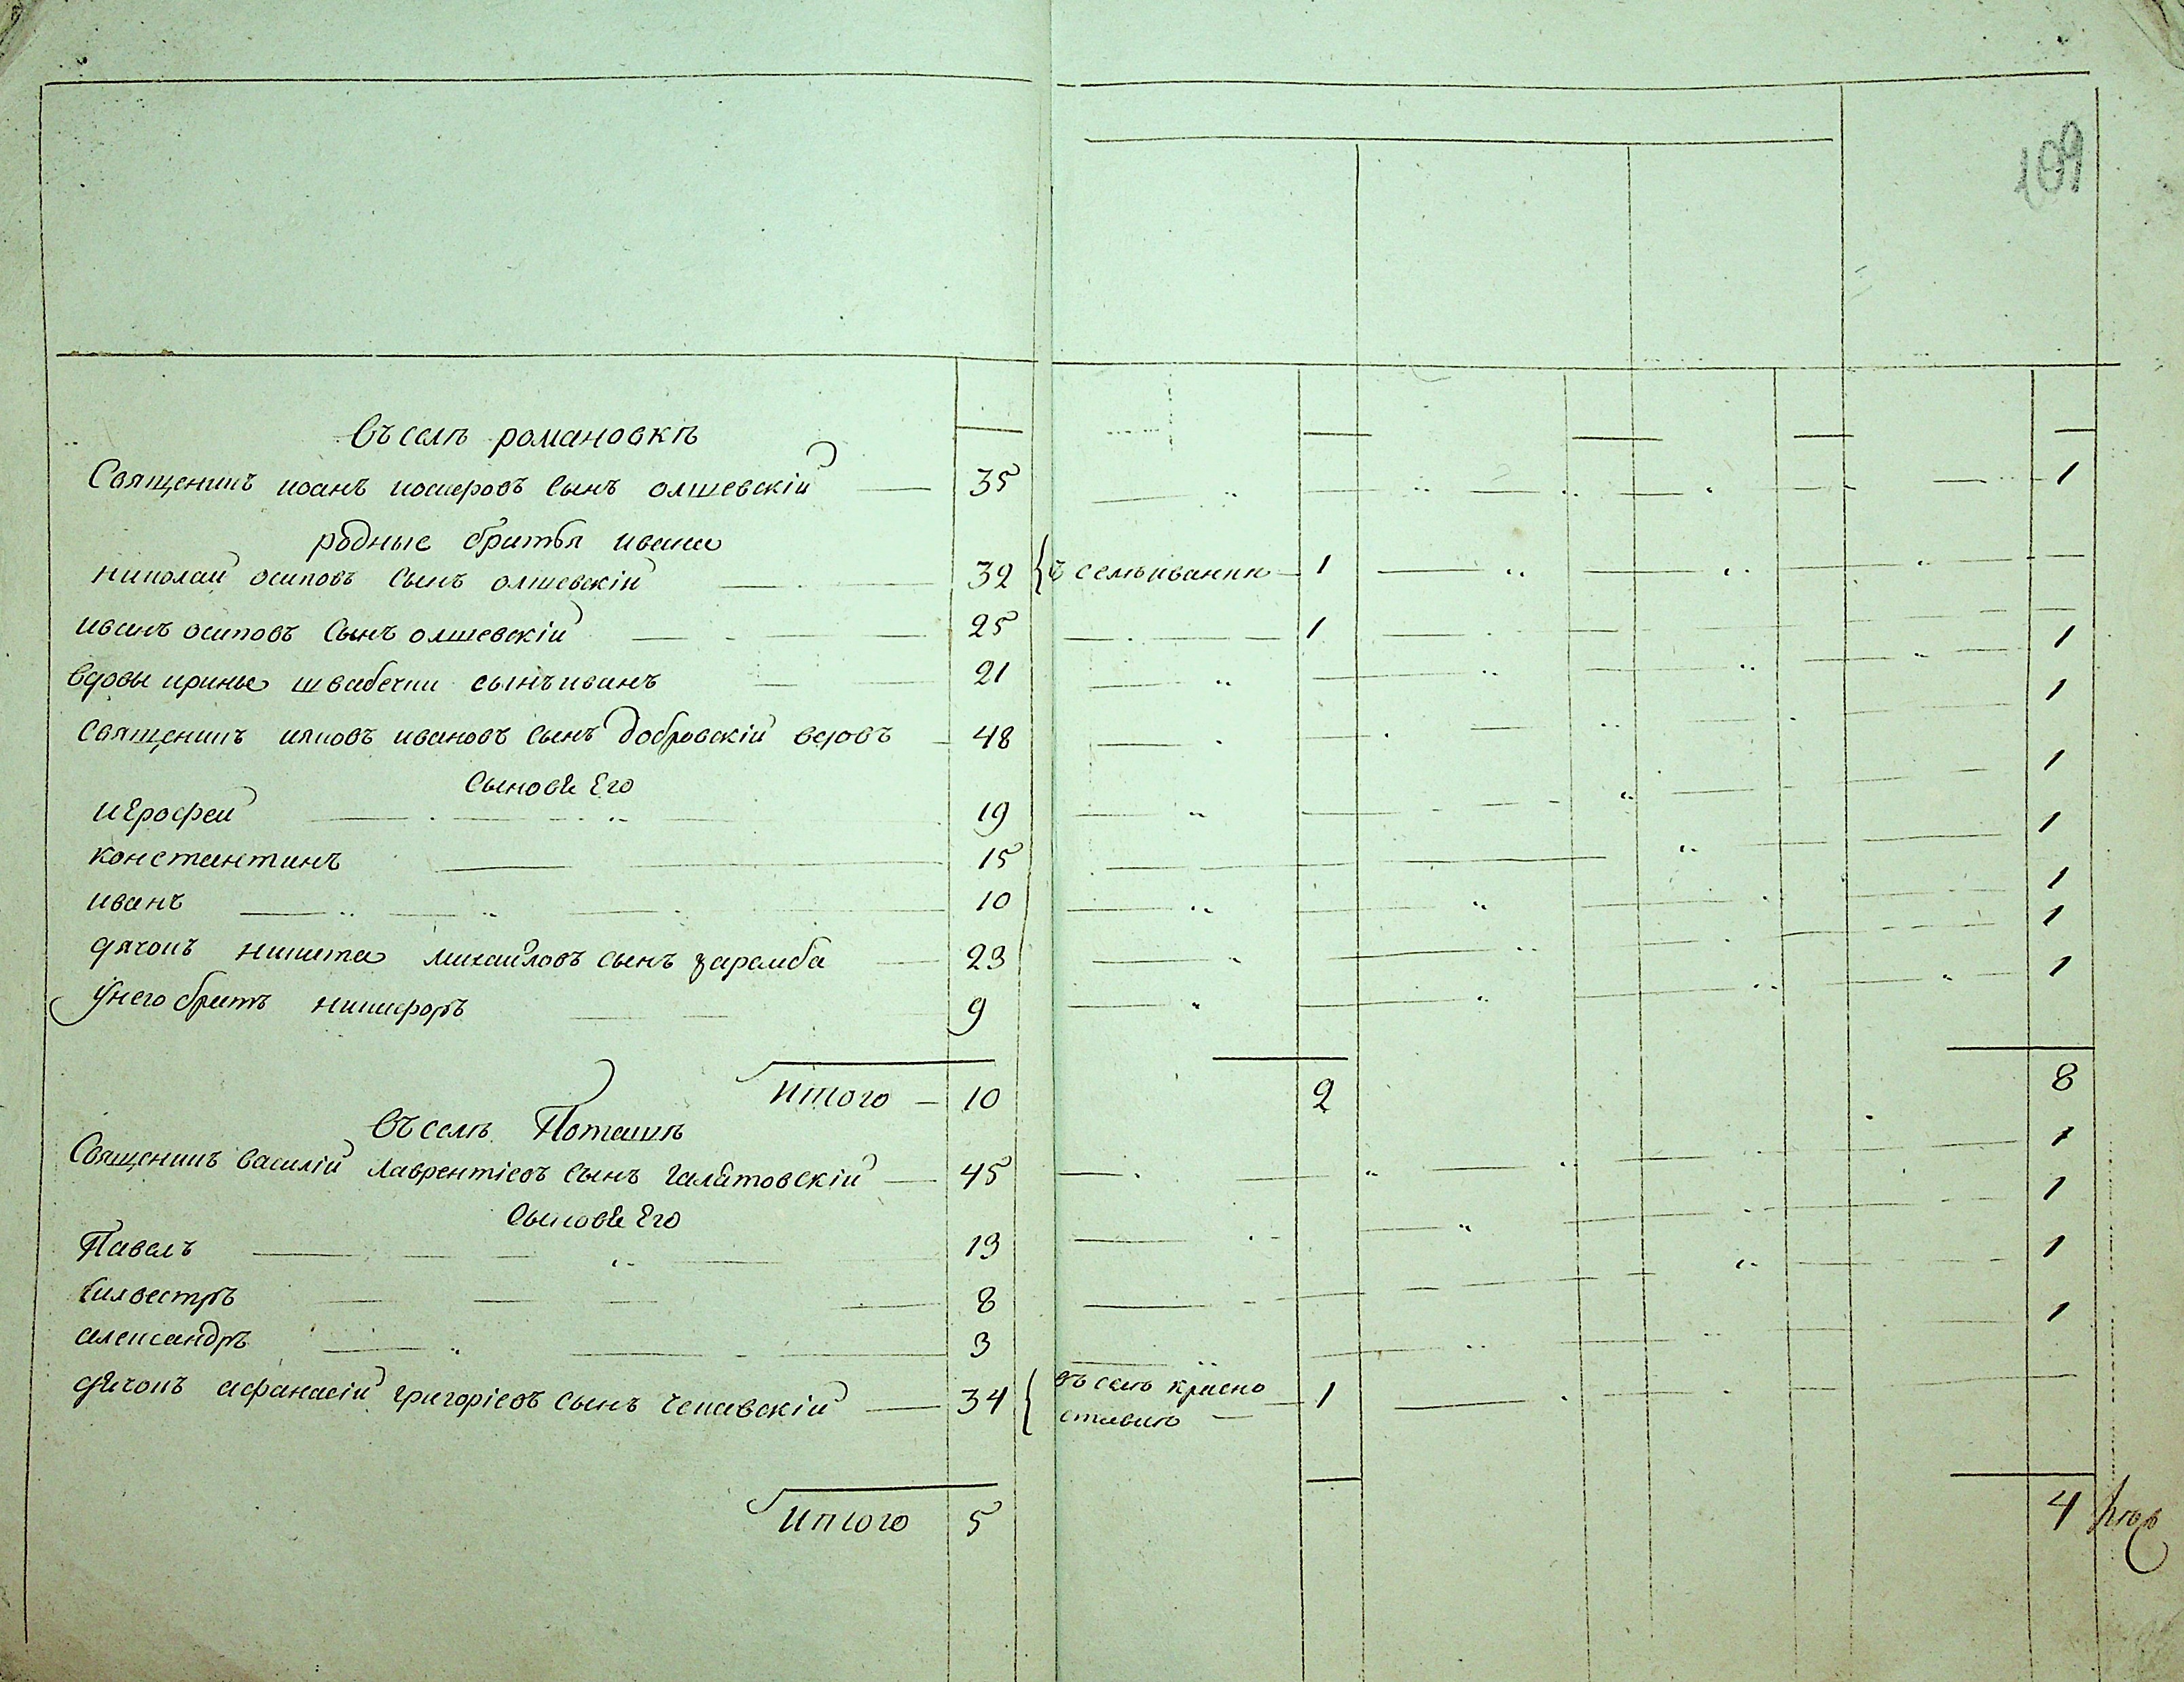 109
Въ селѣ романовкѣ
Священикъ иоанъ иосифовъ сынъ олшевскій — 35 — 1
родные братья ивана
николай осиповъ сынъ олшевскій — 32 { в селѣ иванки — 1
иванъ осиповъ сынъ олшевскій — 25 — 1
вдовы ирины швабечки сынъ иванъ — 21 — 1
священикъ иаковъ ивановъ сынъ добровскій вдовъ — 48 — 1
сыновѣ Его
иерофей — 19 — 1
константинъ — 15 — 1
иванъ — 10 — 1
дячокъ никита михайловъ сынъ заремба — 23 — 1
у него братъ никифоръ — 9 — 1
итого — 10 2 8
Въ селѣ Поташѣ
Священикъ василій лаврентіевъ сынъ галятовскій — 45 — 1
сыновѣ Его
Павелъ — 13 — 1
силвестръ — 8 — 1
александръ — 3 — 1
дячокъ афанасій григоріевъ сынъ чепавскій — 34 { въ селѣ красно — 1
ставкѣ —
итого 5 4